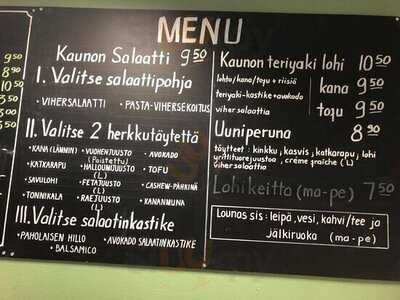 MENU
9.50
8.90
10.50
Kaunon Salaatti 9.50
I. Valitse salaattipohja
• VIHERSALAATTI • PASTA-VIHERSEKOITUS
II. Valitse 2 herkkutäytettä
• KANA (LÄMMIN)
• KATKARAPU
• SAVULOHI
• TONNIKALA
• VUOHENJUUSTO
(Poistettu)
• HALLOUMIJUUSTO
(L)
• FETAJUUSTO
(L)
• RAEJUUSTO
(L)
• AVOKADO
• TOFU
• CASHEW-PÄHKINÄ
• KANANMUNA
III. Valitse salaatinkastike
• PAHOLAISEN HILLO • AVOKADO SALAATINKASTIKE
• BALSAMICO
Kaunon teriyaki lohi 10.50
lohta/kana/tofu + riisiä
teriyaki-kastike + avokado
vihersalaattia
kana 9.50
tofu 9.50
Uuniperuna 8.90
täytteet : kinkku, kasvis, katkarapu, lohi
yrttituorejuustoa, créme fraiche (L)
vihersalaattia
Lohikeitto (ma-pe) 7.50
Lounas sis : leipä, vesi, kahvi/tee ja
jälkiruoka (ma-pe)